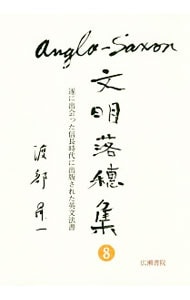 Anglo-Saxon
文明落穂集
8
遂に出会った信長時代に出版された英文法書
渡部昇一
広瀬書院